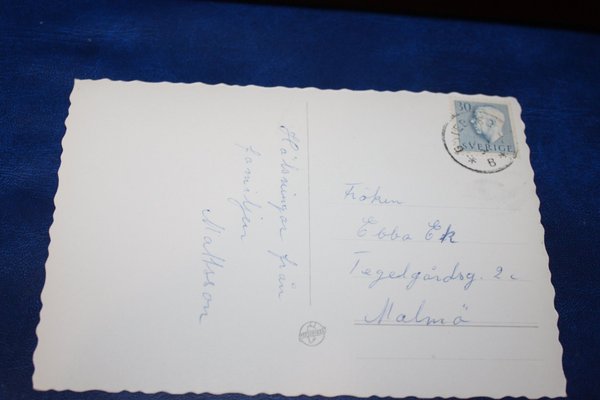 Hälsningar från
familjen
Mattsson
30
SVERIGE
B
Fröken
Ebba Ek
Tegelgårdsg. 2c
Malmö